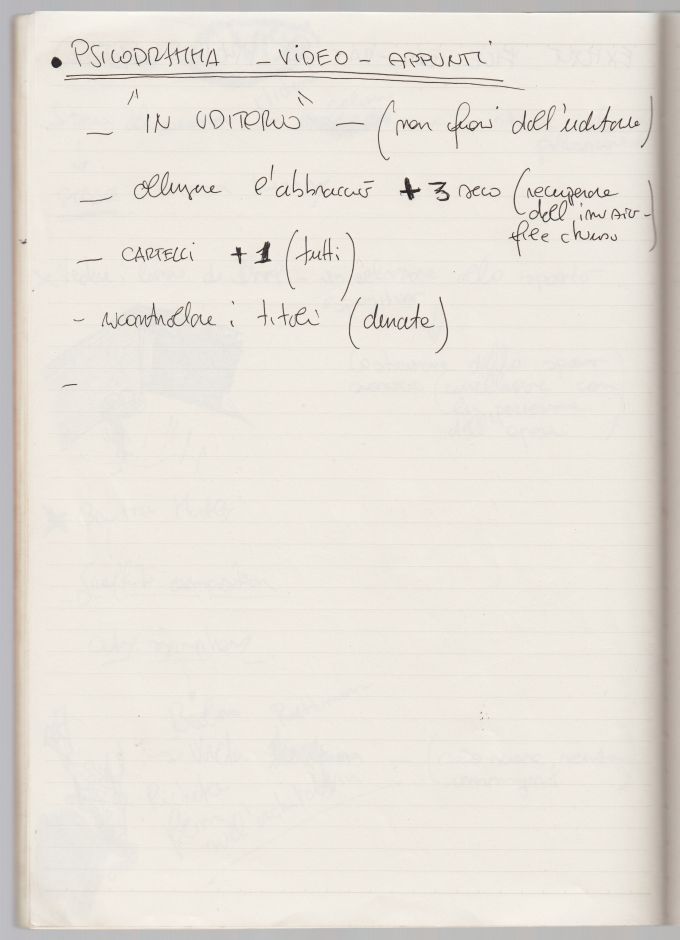 • PSICODRAMMA - VIDEO - APPUNTI
- "IN UDITORIO" - (non fuori dall'uditorio)
- allungare l'abbraccio +3 secO (recuperare
dall'invaso-
- CARTELLI +1 (tutti)
- ricontrollare i titoli (durate)
-